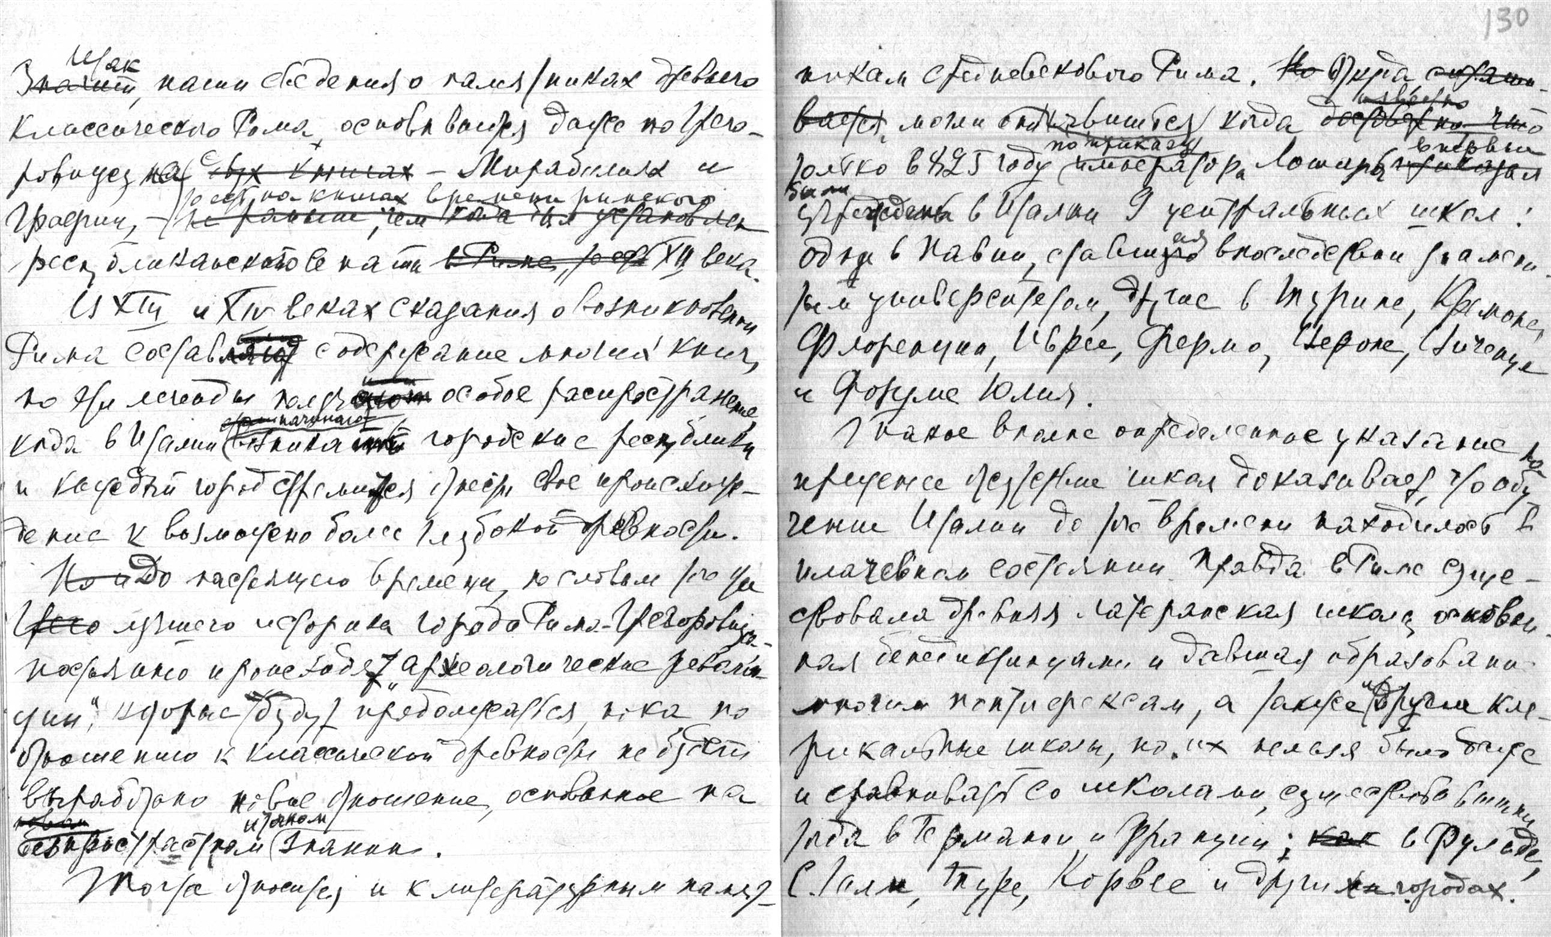 Итак
Значит, наши сведения о памятниках древнего
классического Рима, основываются даже по Грего-
ровиусу на двух книгах — Мирабилиях и
Графии, —
то есть на книгах времени римского
не раньше, чем когда был установлен
республиканского сената в Риме, то есть XII века.
И XIII и XIV веках сказания о возникновении
Рима составляют содержание многих книг,
но эти легенды получают особое распространение
когда в Италии начинают городские республики
и каждый город стремится отнести свое происхож-
дение к возможно более глубокой древности.
Но и до настоящего времени, по словам того же
лучшего историка города Рима — Грегоровиуса —
постоянно происходят „археологические револю-
ции", которые будут продолжаться, пока по
отношению к классической древности не будет
выработано новое отношение, основанное на
новом
беспристрастном и точном знании.
То же относится и к литературным памят-
130
никам средневекового Рима. Но откуда
могли они явиться, когда известно доподлинно, что
только в 825 году по приказу императора Лотаря впервые приказал
были
учреждены в Италии 9 центральных школ:
одна в Павии, ставшая впоследствии знамени-
тым университетом, другие в Турине, Кремоне,
Флоренции, Иврее, Фермо, Вероне, Виченце
и Форуме Юлия.
Такое вполне определенное указание на
прежнее отсутствие школ доказывает, что обу-
чение Италии до того времени находилось в
плачевном состоянии. Правда в Риме суще-
ствовала древняя латеранская школа, основан-
ная бенедиктинцами и дававшая образование
многим понтифексам, а также и другие кле-
рикальные школы, но их нельзя было даже
и сравнивать со школами, существовавшими
тогда в Германии и Франции; как в Фульде,
С. Галли, Туре, Корвее и других городах.